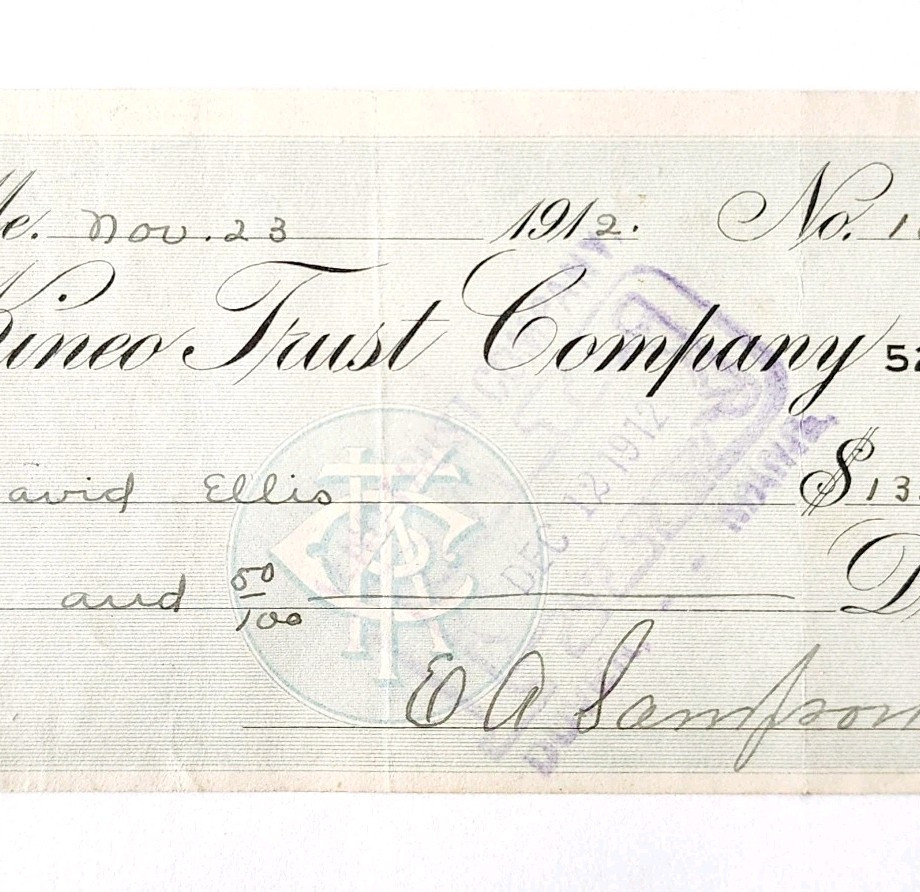 Me. Nov. 23 1912. No. 1
Kineo Trust Company 52
avid Ellis $13.
and 50/100 D
E A Sampson
DEC 12 1912